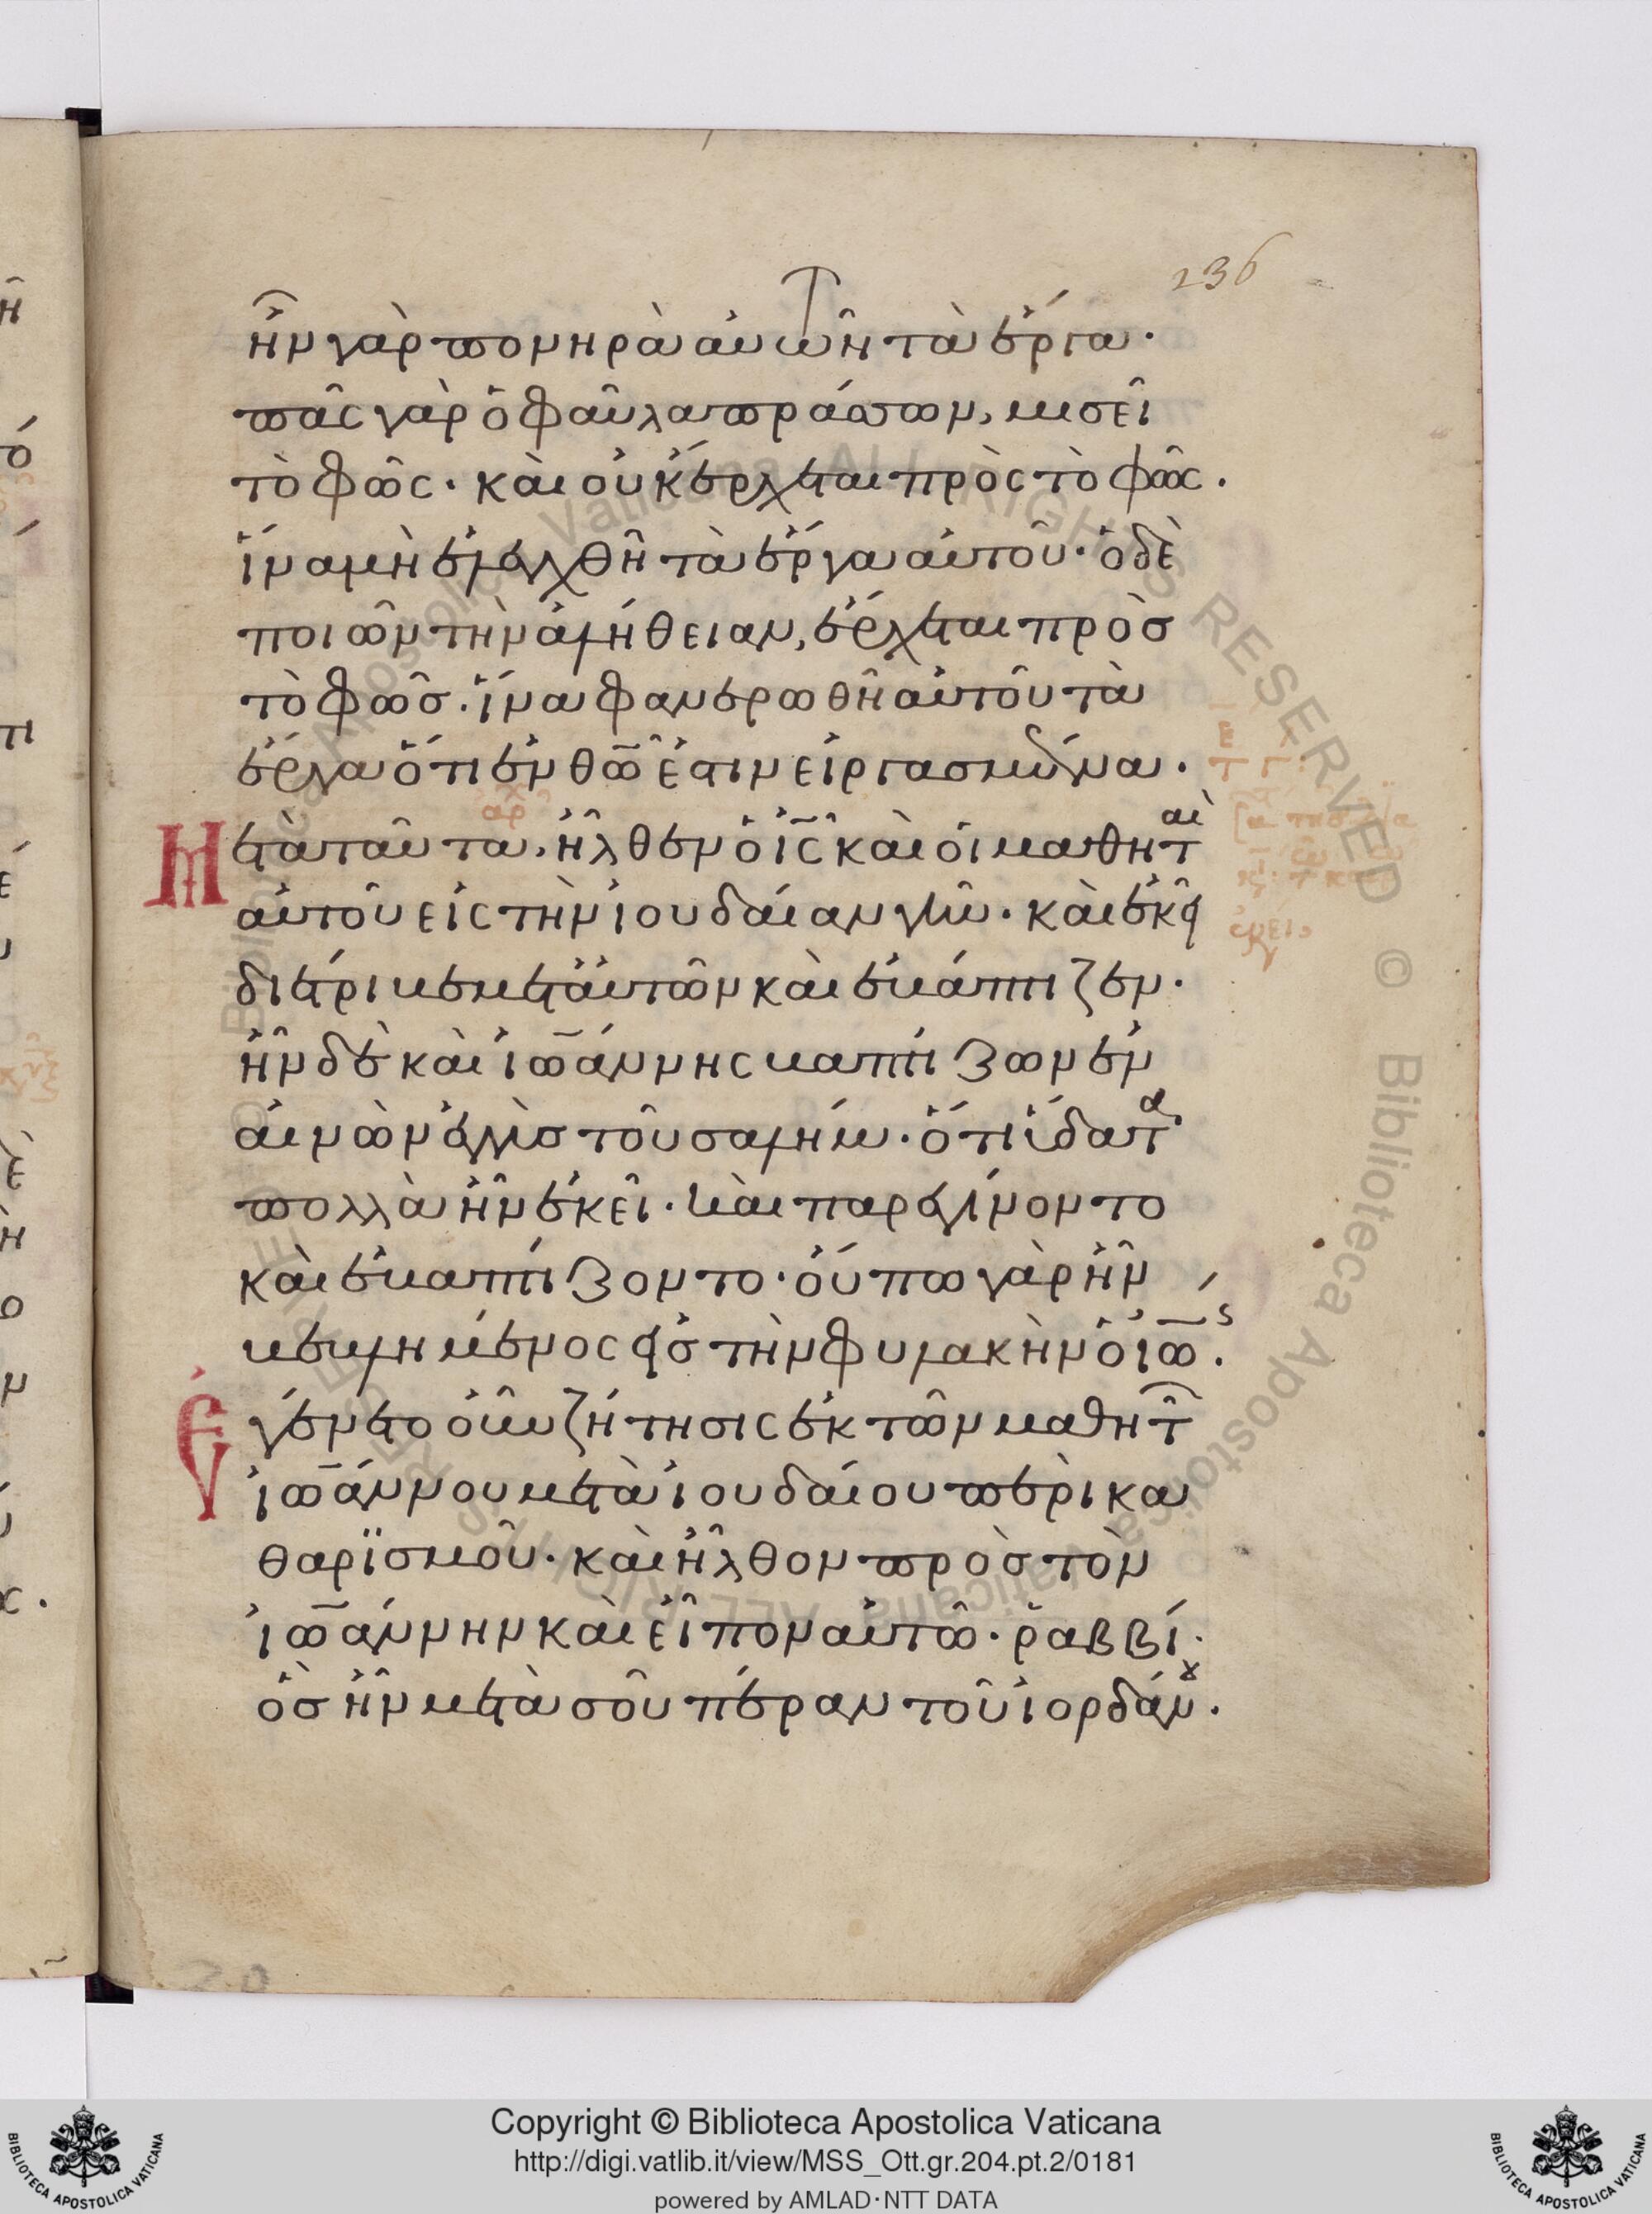 236
ἦν γὰρ πονηρὰ αὐτῶν τὰ ἔργα·
πᾶς γὰρ ὁ φαῦλα πράσσων, μισεῖ
τὸ φῶς· καὶ οὐκ ἔρχεται πρὸς τὸ φῶς.
ἵνα μὴ ἐλεγχθῆ τὰ ἔργα αὐτοῦ· ὁ δὲ
ποιῶν τὴν ἀλήθειαν, ἔρχεται πρὸσ
τὸ φῶσ. ἵνα φανερωθῆ αὐτοῦ τὰ
ἔργα ὅτι ἐν θ̅ω̅ ἐστιν εἰργασμένα.
Μετὰ ταῦτα, ἦλθεν ὁ ι̅ς̅ καὶ οἱ μαθηταὶ
αὐτοῦ εἰς τὴν ἰουδαίαν γῆν· καὶ ἐκεῖ
διέτριβε μετ' αὐτῶν καὶ ἐβάπτιζεν.
ἦν δὲ καὶ ἰω̅άννης βαπτίζων ἐν
αἰνὼν ἐγγὺσ τοῦ σαλήμ· ὅτι ὕδατα
πολλὰ ἦν ἐκεῖ· καὶ παρεγίνοντο
καὶ ἐβαπτίζοντο· οὔπω γὰρ ἦν
βεβλημένος εἰσ τὴν φυλακὴν ὁ ἰω̅ς.
Ἐγένετο οὖν ζήτησις ἐκ τῶν μαθητῶν
ἰω̅άννου μετὰ ἰουδαίου περὶ κα
θαρϊσμοῦ· καὶ ἦλθον πρὸσ τὸν
ἰω̅άννην καὶ εἶπον αὐτῶ· ῥαββί·
ὃσ ἦν μετὰ σοῦ πέραν τοῦ ἰορδάνου.
Copyright © Biblioteca Apostolica Vaticana
http://digi.vatlib.it/view/MSS_Ott.gr.204.pt.2/0181
powered by AMLAD·NTT DATA